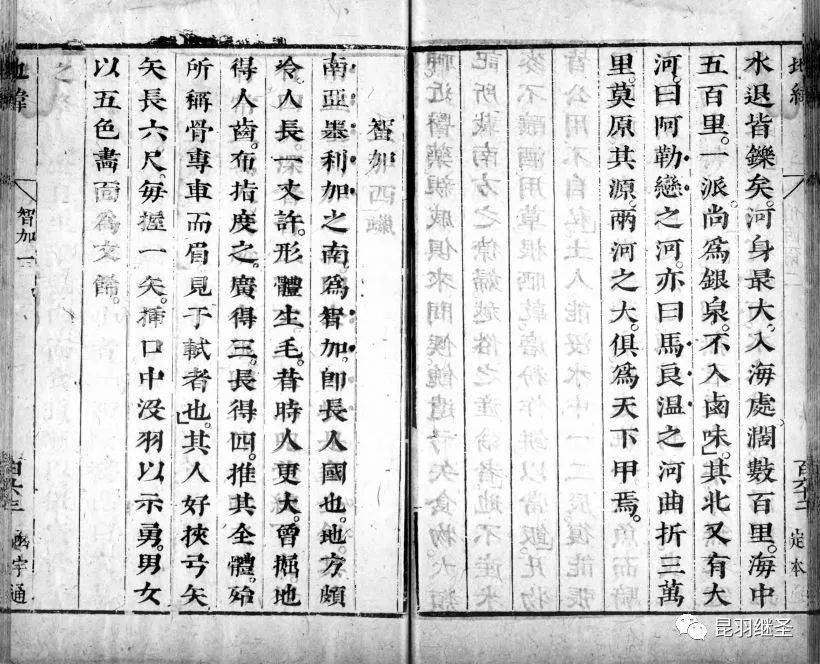 地緯
水退皆鑠矣。河身最大。入海處。濶數百里。海中
五百里。一派。尚爲銀泉。不入鹵味。」其北又有大
河。曰阿勒戀之河。亦曰馬良溫之河。曲折三萬
里。莫原其源。兩河之大。俱爲天下甲焉。
百六十二
定本
智加西蠟
南亞墨利加之南。爲智加。卽長人國也。地方頗
冷。人長一丈許。形體生毛。昔時人更大。曾掘地
得人齒。布指度之。廣得三。長得四。推其全體。殆
所稱骨專車而眉見于軾者也。」其人好挾弓矢
矢長六尺。每握一矢。揷口中没羽以示勇。男女
以五色畵面爲文飾。
地緯
智加一
百六十三
函宇通
昆羽继圣